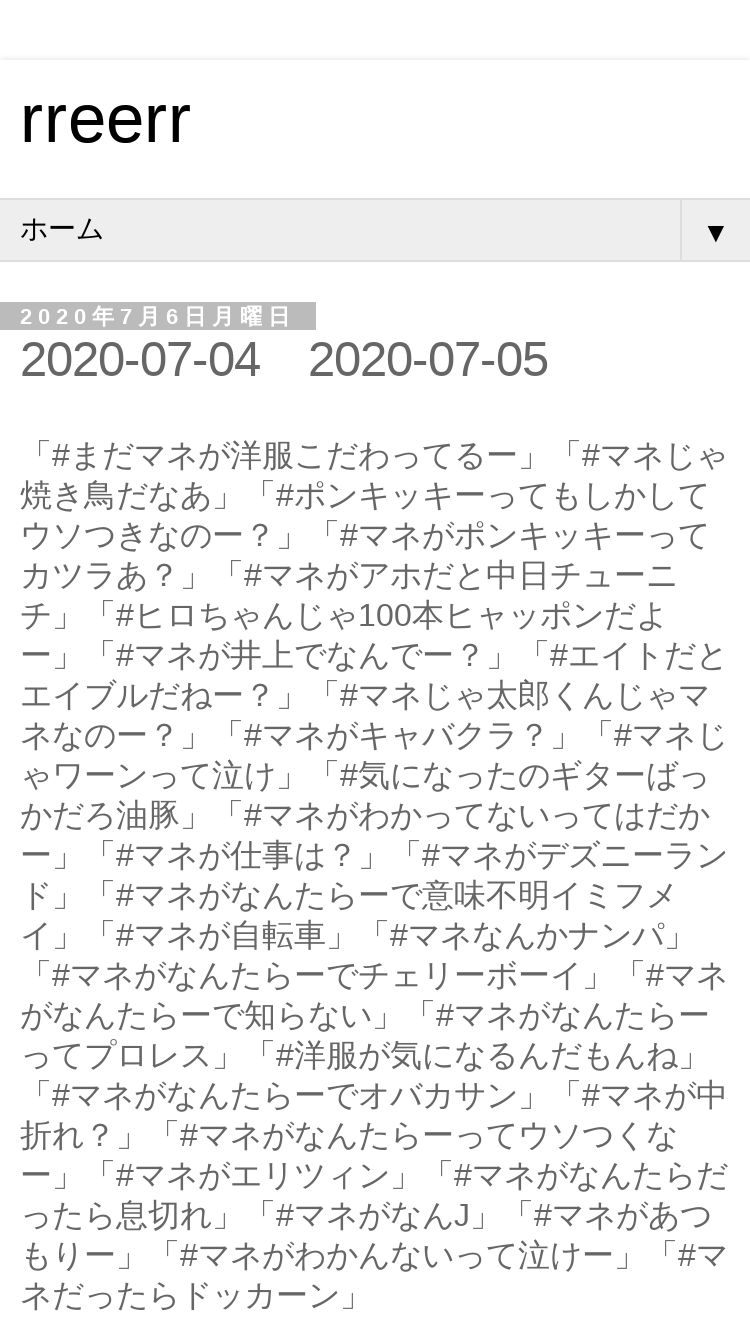 rreerr
ホーム
▼
2020年7月6日月曜日
2020-07-04　2020-07-05
「#まだマネが洋服こだわってるー」「#マネじゃ
焼き鳥だなあ」「#ポンキッキーってもしかして
ウソつきなのー？」「#マネがポンキッキーって
カツラあ？」「#マネがアホだと中日チューニ
チ」「#ヒロちゃんじゃ100本ヒャッポンだよ
ー」「#マネが井上でなんでー？」「#エイトだと
エイブルだねー？」「#マネじゃ太郎くんじゃマ
ネなのー？」「#マネがキャバクラ？」「#マネじ
ゃワーンって泣け」「#気になったのギターばっ
かだろ油豚」「#マネがわかってないってはだか
ー」「#マネが仕事は？」「#マネがデズニーラン
ド」「#マネがなんたらーで意味不明イミフメ
イ」「#マネが自転車」「#マネなんかナンパ」
「#マネがなんたらーでチェリーボーイ」「#マネ
がなんたらーで知らない」「#マネがなんたらー
ってプロレス」「#洋服が気になるんだもんね」
「#マネがなんたらーでオバカサン」「#マネが中
折れ？」「#マネがなんたらーってウソつくな
ー」「#マネがエリツィン」「#マネがなんたらだ
ったら息切れ」「#マネがなんJ」「#マネがあつ
もりー」「#マネがわかんないって泣けー」「#マ
ネだったらドッカーン」